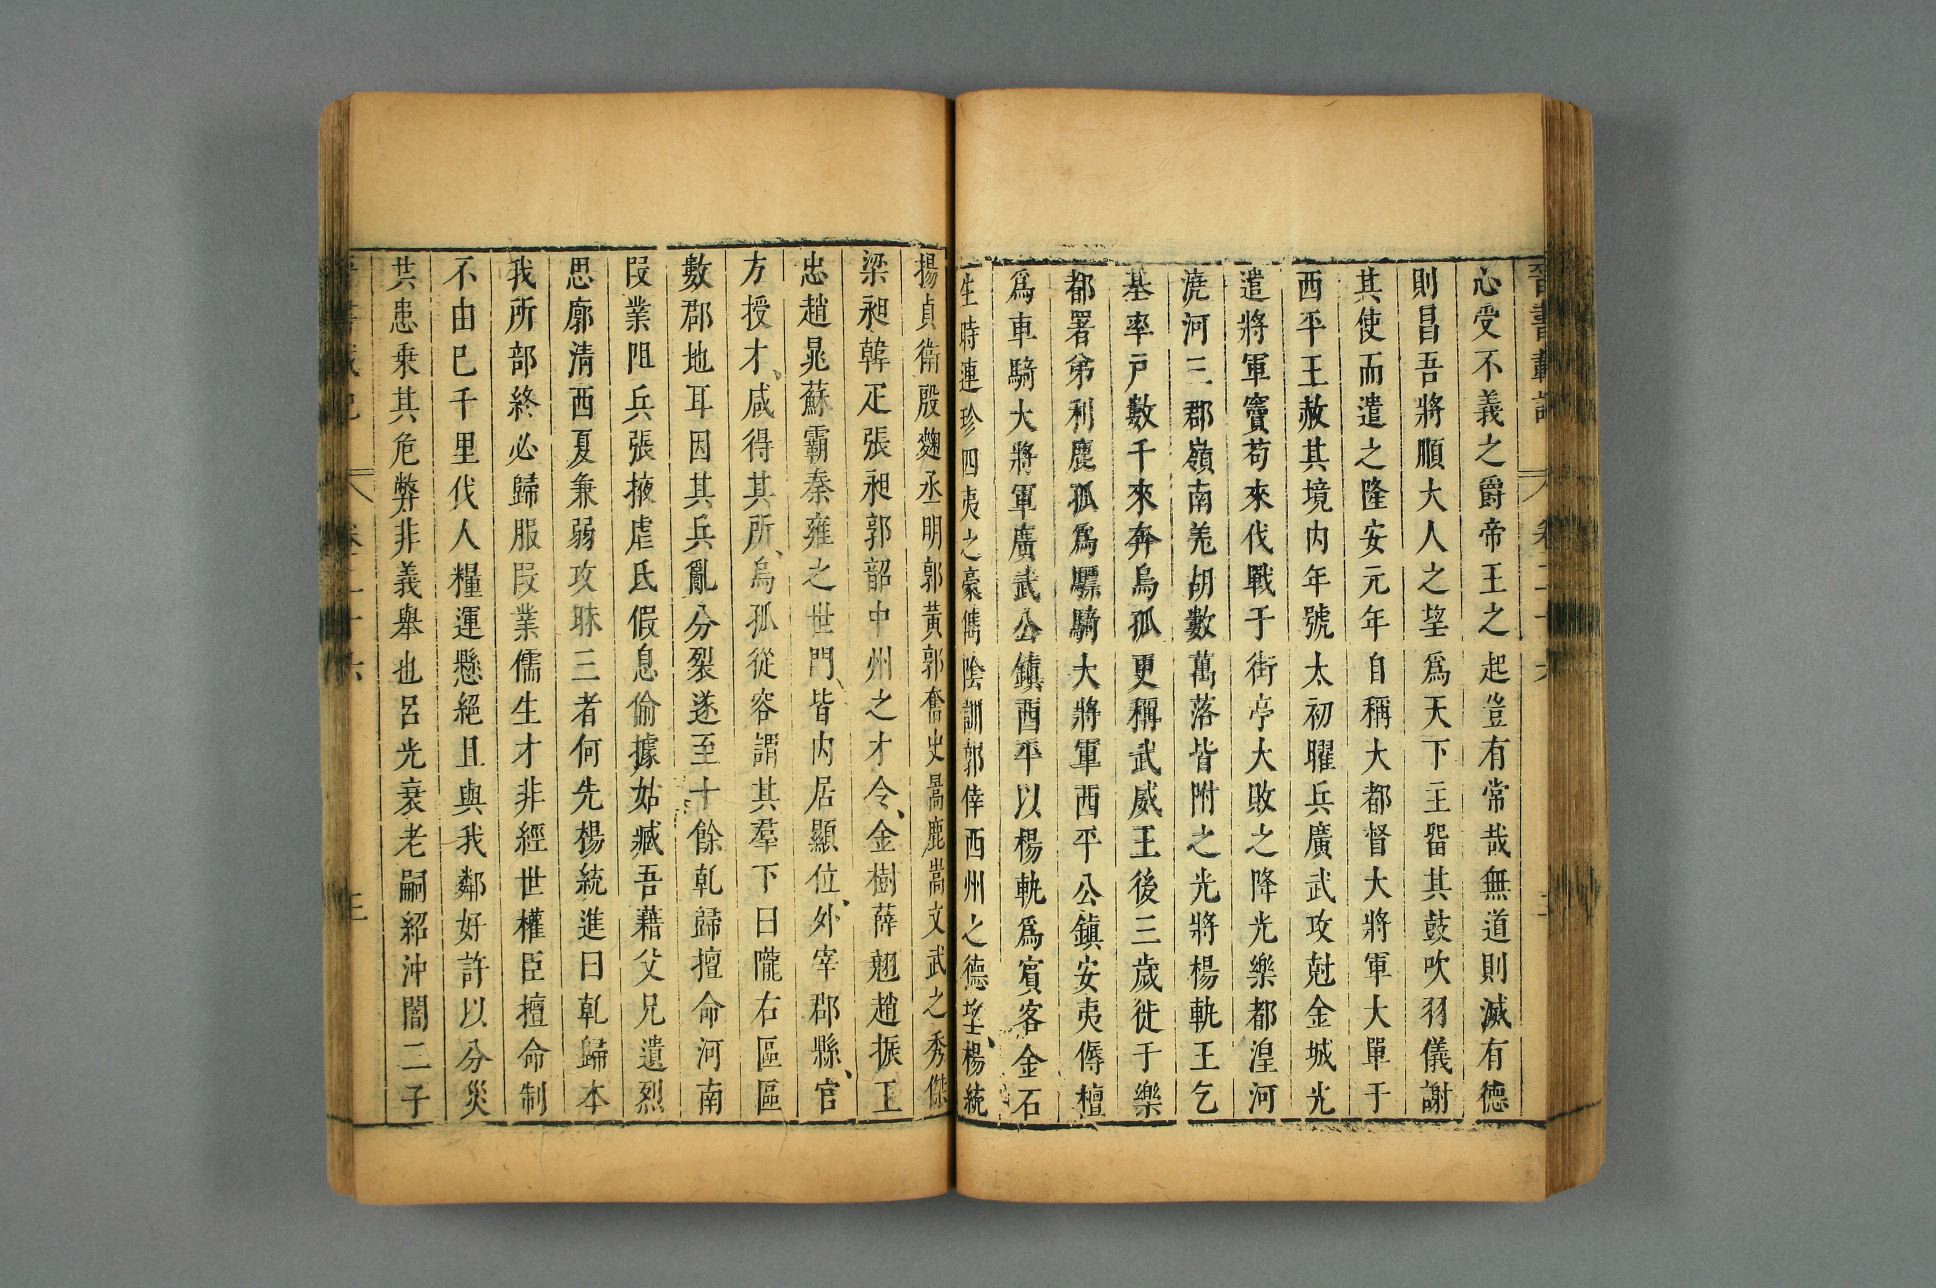 晉書載記 卷二十六
心受不義之爵帝王之起豈有常哉無道則滅有德
則昌吾將順大人之望為天下主畱其鼓吹羽儀謝
其使而遣之隆安元年自稱大都督大將軍大單于
西平王赦其境内年號太初曜兵廣武攻尅金城光
遣將軍竇苟來伐戰于街亭大敗之降光樂都湟河
澆河三郡嶺南羌胡數萬落皆附之光將楊軌王乞
基率戸數千來奔烏孤更稱武威王後三歲徙于樂
都署弟利鹿孤爲驃騎大將軍西平公鎮安夷傉檀
爲車騎大將軍廣武公鎮西平以楊軌爲賓客金石
生時連珍四夷之豪儁陰訓郭倖西州之德望楊統
揚貞衛殷麴丞明郭黃郭奮史暠鹿嵩文武之秀傑
梁昶韓疋張昶郭韶中州之才令金樹薛翹趙振王
忠趙晁蘇霸秦雍之世門皆内居顯位外宰郡縣官
方授才咸得其所烏孤從容謂其羣下曰隴右區區
數郡地耳因其兵亂分裂遂至十餘乹歸擅命河南
叚業阻兵張掖虐氐假息偷據姑臧吾藉父兄遺烈
思廓清西夏兼弱攻昧三者何先楊統進曰乹歸本
我所部終必歸服叚業儒生才非經世權臣擅命制
不由巳千里伐人糧運懸絕且與我鄰好許以分災
共患乗其危弊非義舉也呂光衰老嗣紹沖闇二子